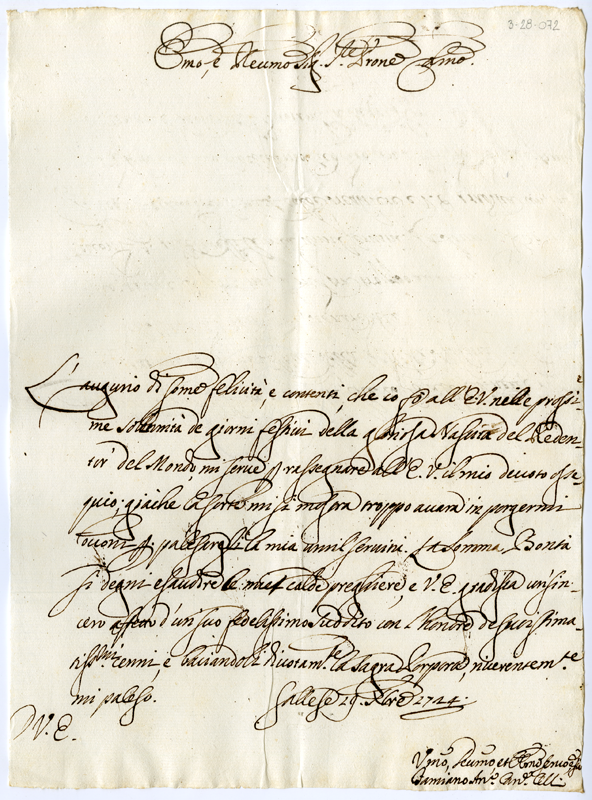 3-28-072
Emo, e Reumo Sig.r Sig.r Prone Colmo.
L'augurio di some felicità, e contenti, che co fò all'E.V. nelle prossi=
me solennità de giorni festiui della gloriosa Nascita del Reden=
tor' del Mondo, mi serue p rassegnare all'E.V. il mio deuoto osse=
quio; giache la sorte mi si mostra troppo auara in porgermi
occoni p palesargli la mia umil seruitù. La Somma Bontà
si degni esaudire le mie calde preghiere, e V.E. gradisca un sin=
cero affetto d'un suo fedelissimo Suddito con l'honore de suoi stima=
tissmi cenni, e baciandoli diuotam.te la Sagra Porpora, riuerentem.te
mi paleso. Gallese 29. Xbre 1724.
D V. E.
Vmo, Deumo et
Damiano An.o Can.o Celli